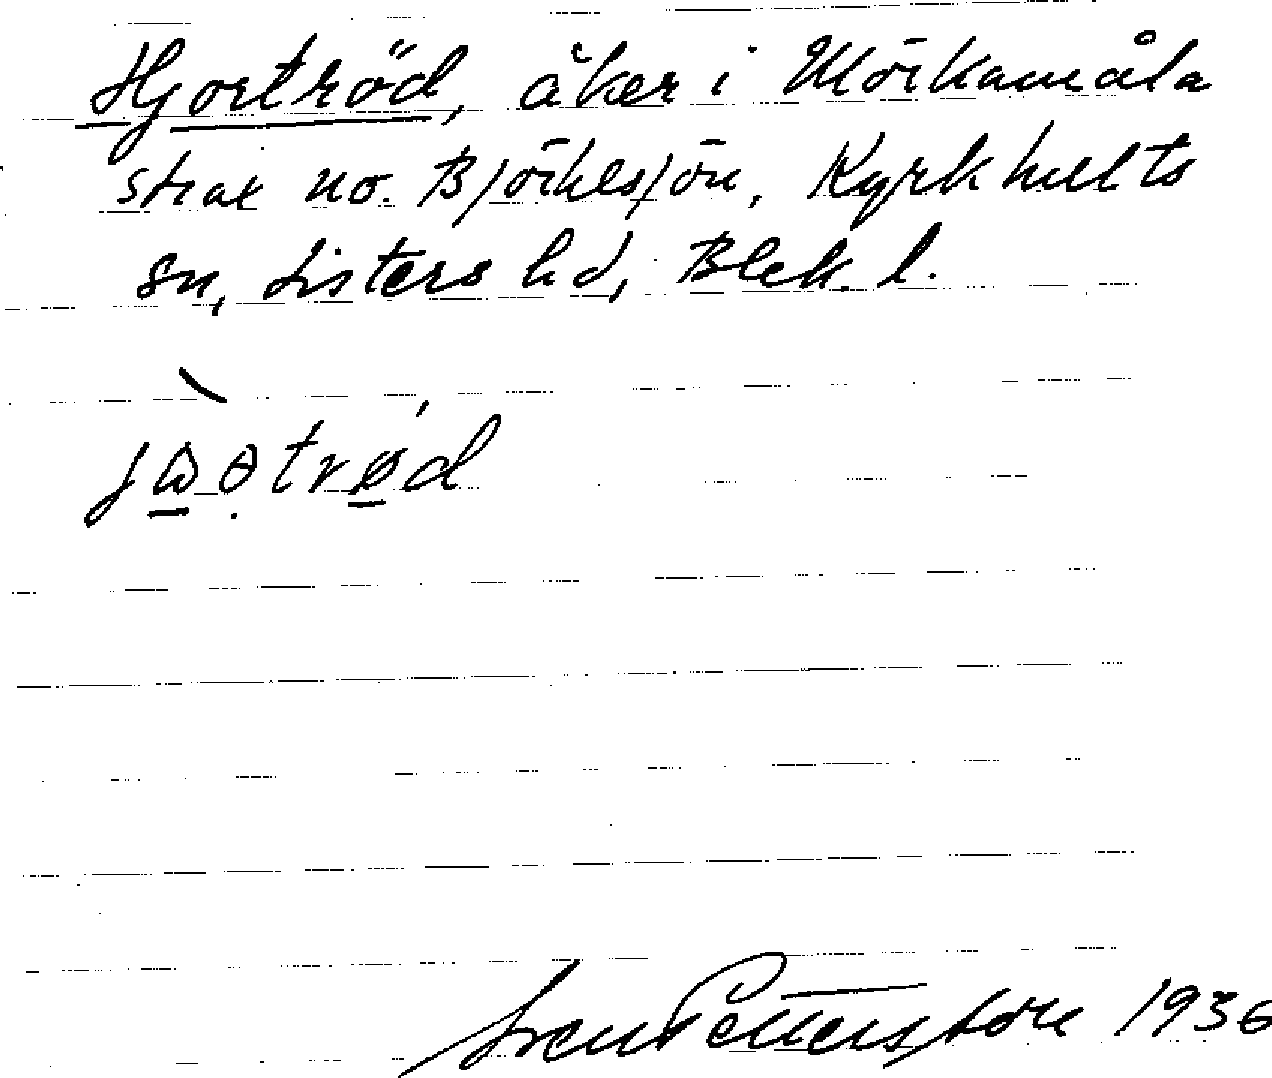 Hjortröd, åker i Mörkamåla
strax no. Björkesjön, Kyrkhults
sn, Listers hd, Blek. l.
Sven Pettersson 1936